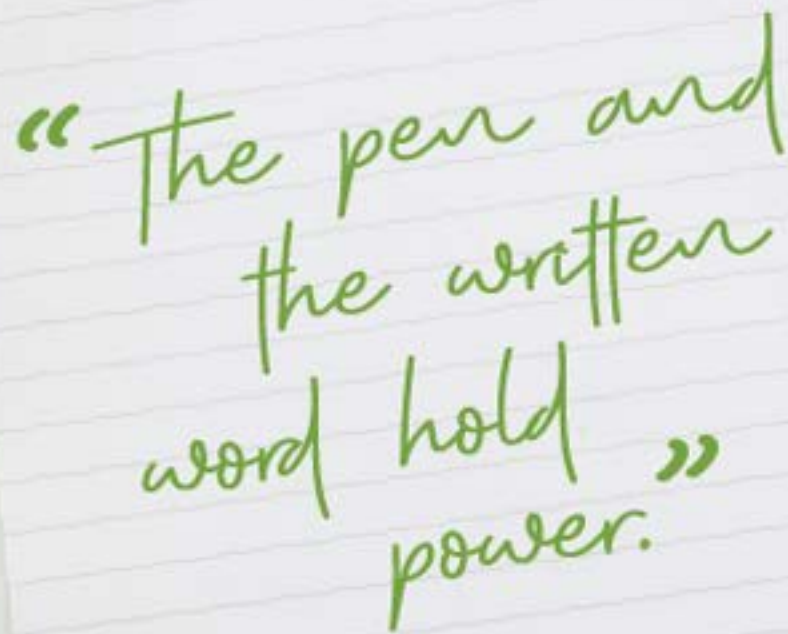 “The pen and
the written
word hold
power.”